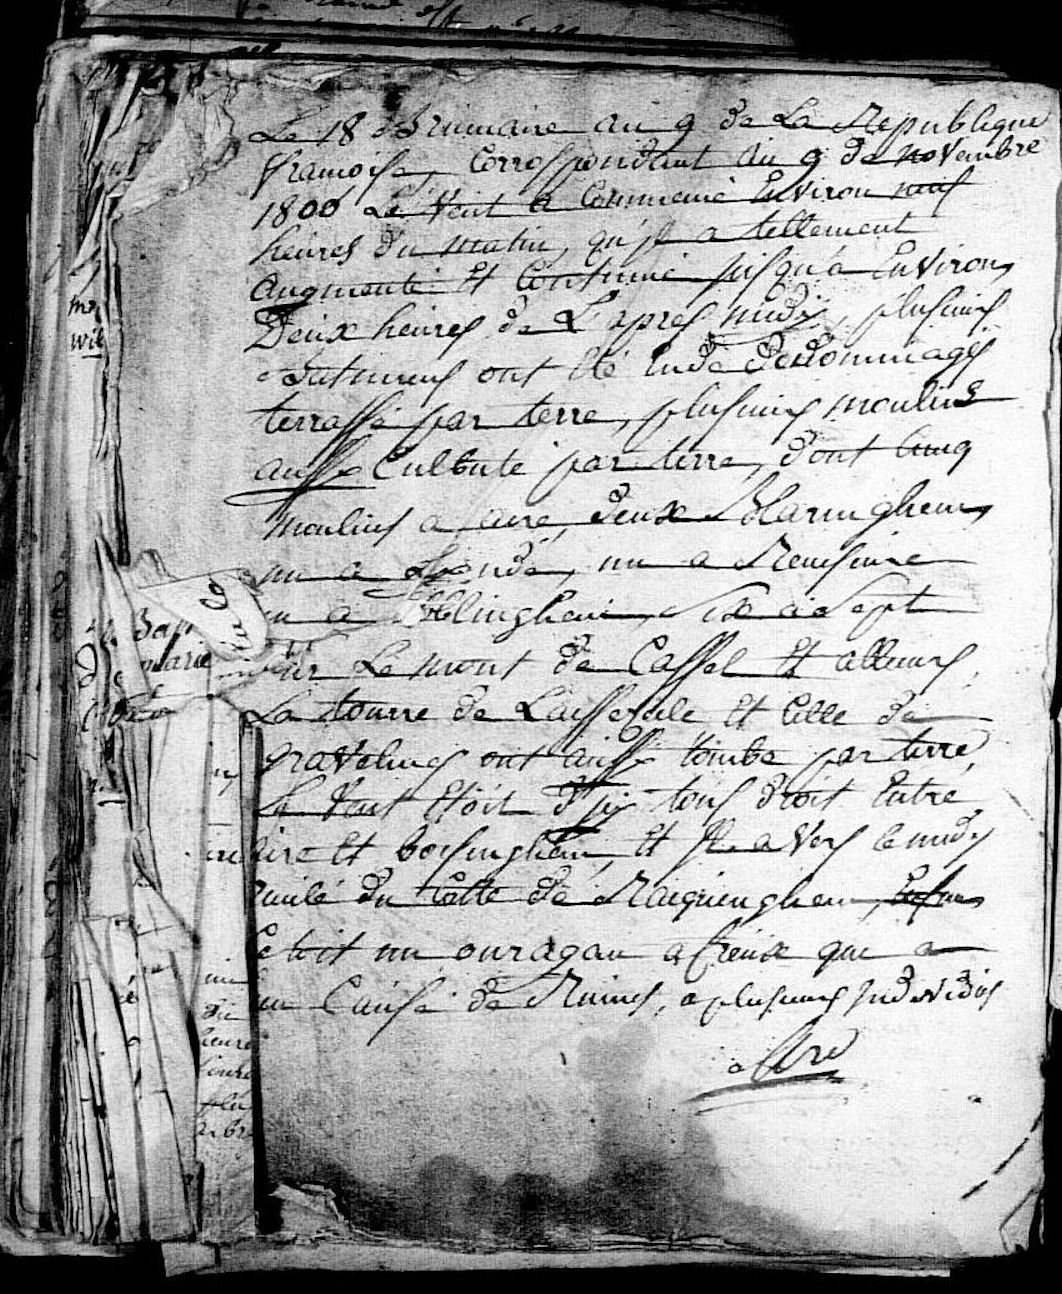 Le 18 Brumaire an 9 de La Republique
francoise, Correspondant au 9 de novembre
1800 Le Vent a Commencé Environ neuf
heures du matin, qu'il a tellement
augmenté et Continué jusqu'a Environ
Deux heures de L'apres midy, plusieurs
ont été de Dedommages
terrassé par terre, plusieurs moulins
aussy Culbuté par terre, dont Cinq
moulins a aire, deux Blaringhem
un a, un a Remsure
un a Eblinghem, Six a Sept
sur Le mont de Cassel Et alleurs,
La tourre de et Celle de
gravelines ont aussy tombé par terre,
Le Vent Etoit tous droit Entre
aire Et boesinghem, et Il a Vers le midy
du Cotté de Racquinghem,
C'etoit un ouragan afreux que a
Causé de Ruines, a plusieurs Individus
a Aire
me
wil
Bap
marie
heure
plu
arbre